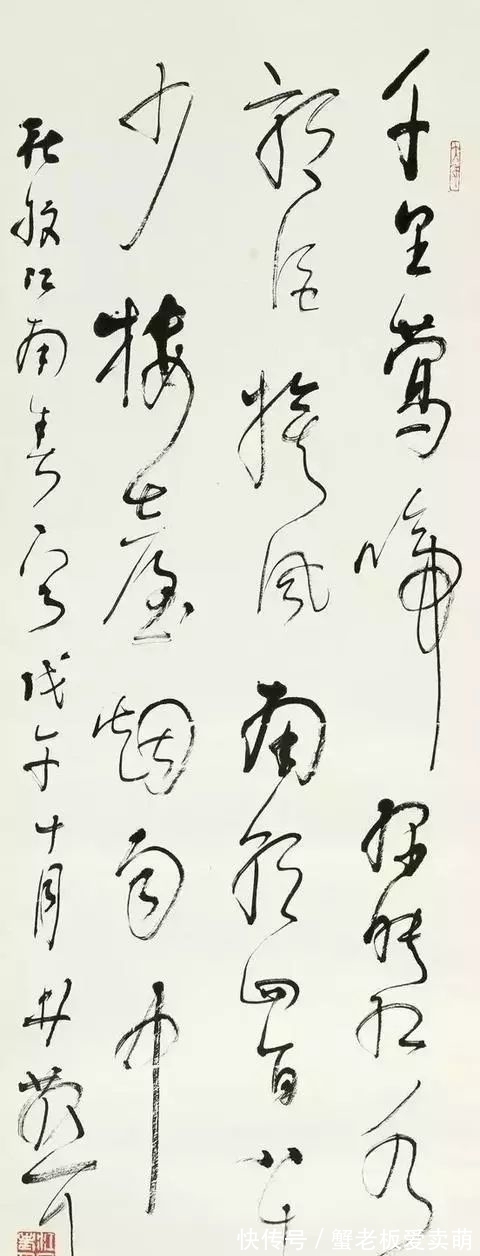 千里鶯啼绿映红水
郭酒旗风南朝四百八十
少樓臺烟雨中
杜牧江南春 戊午十月林散耳
快传号/蟹老板爱卖萌